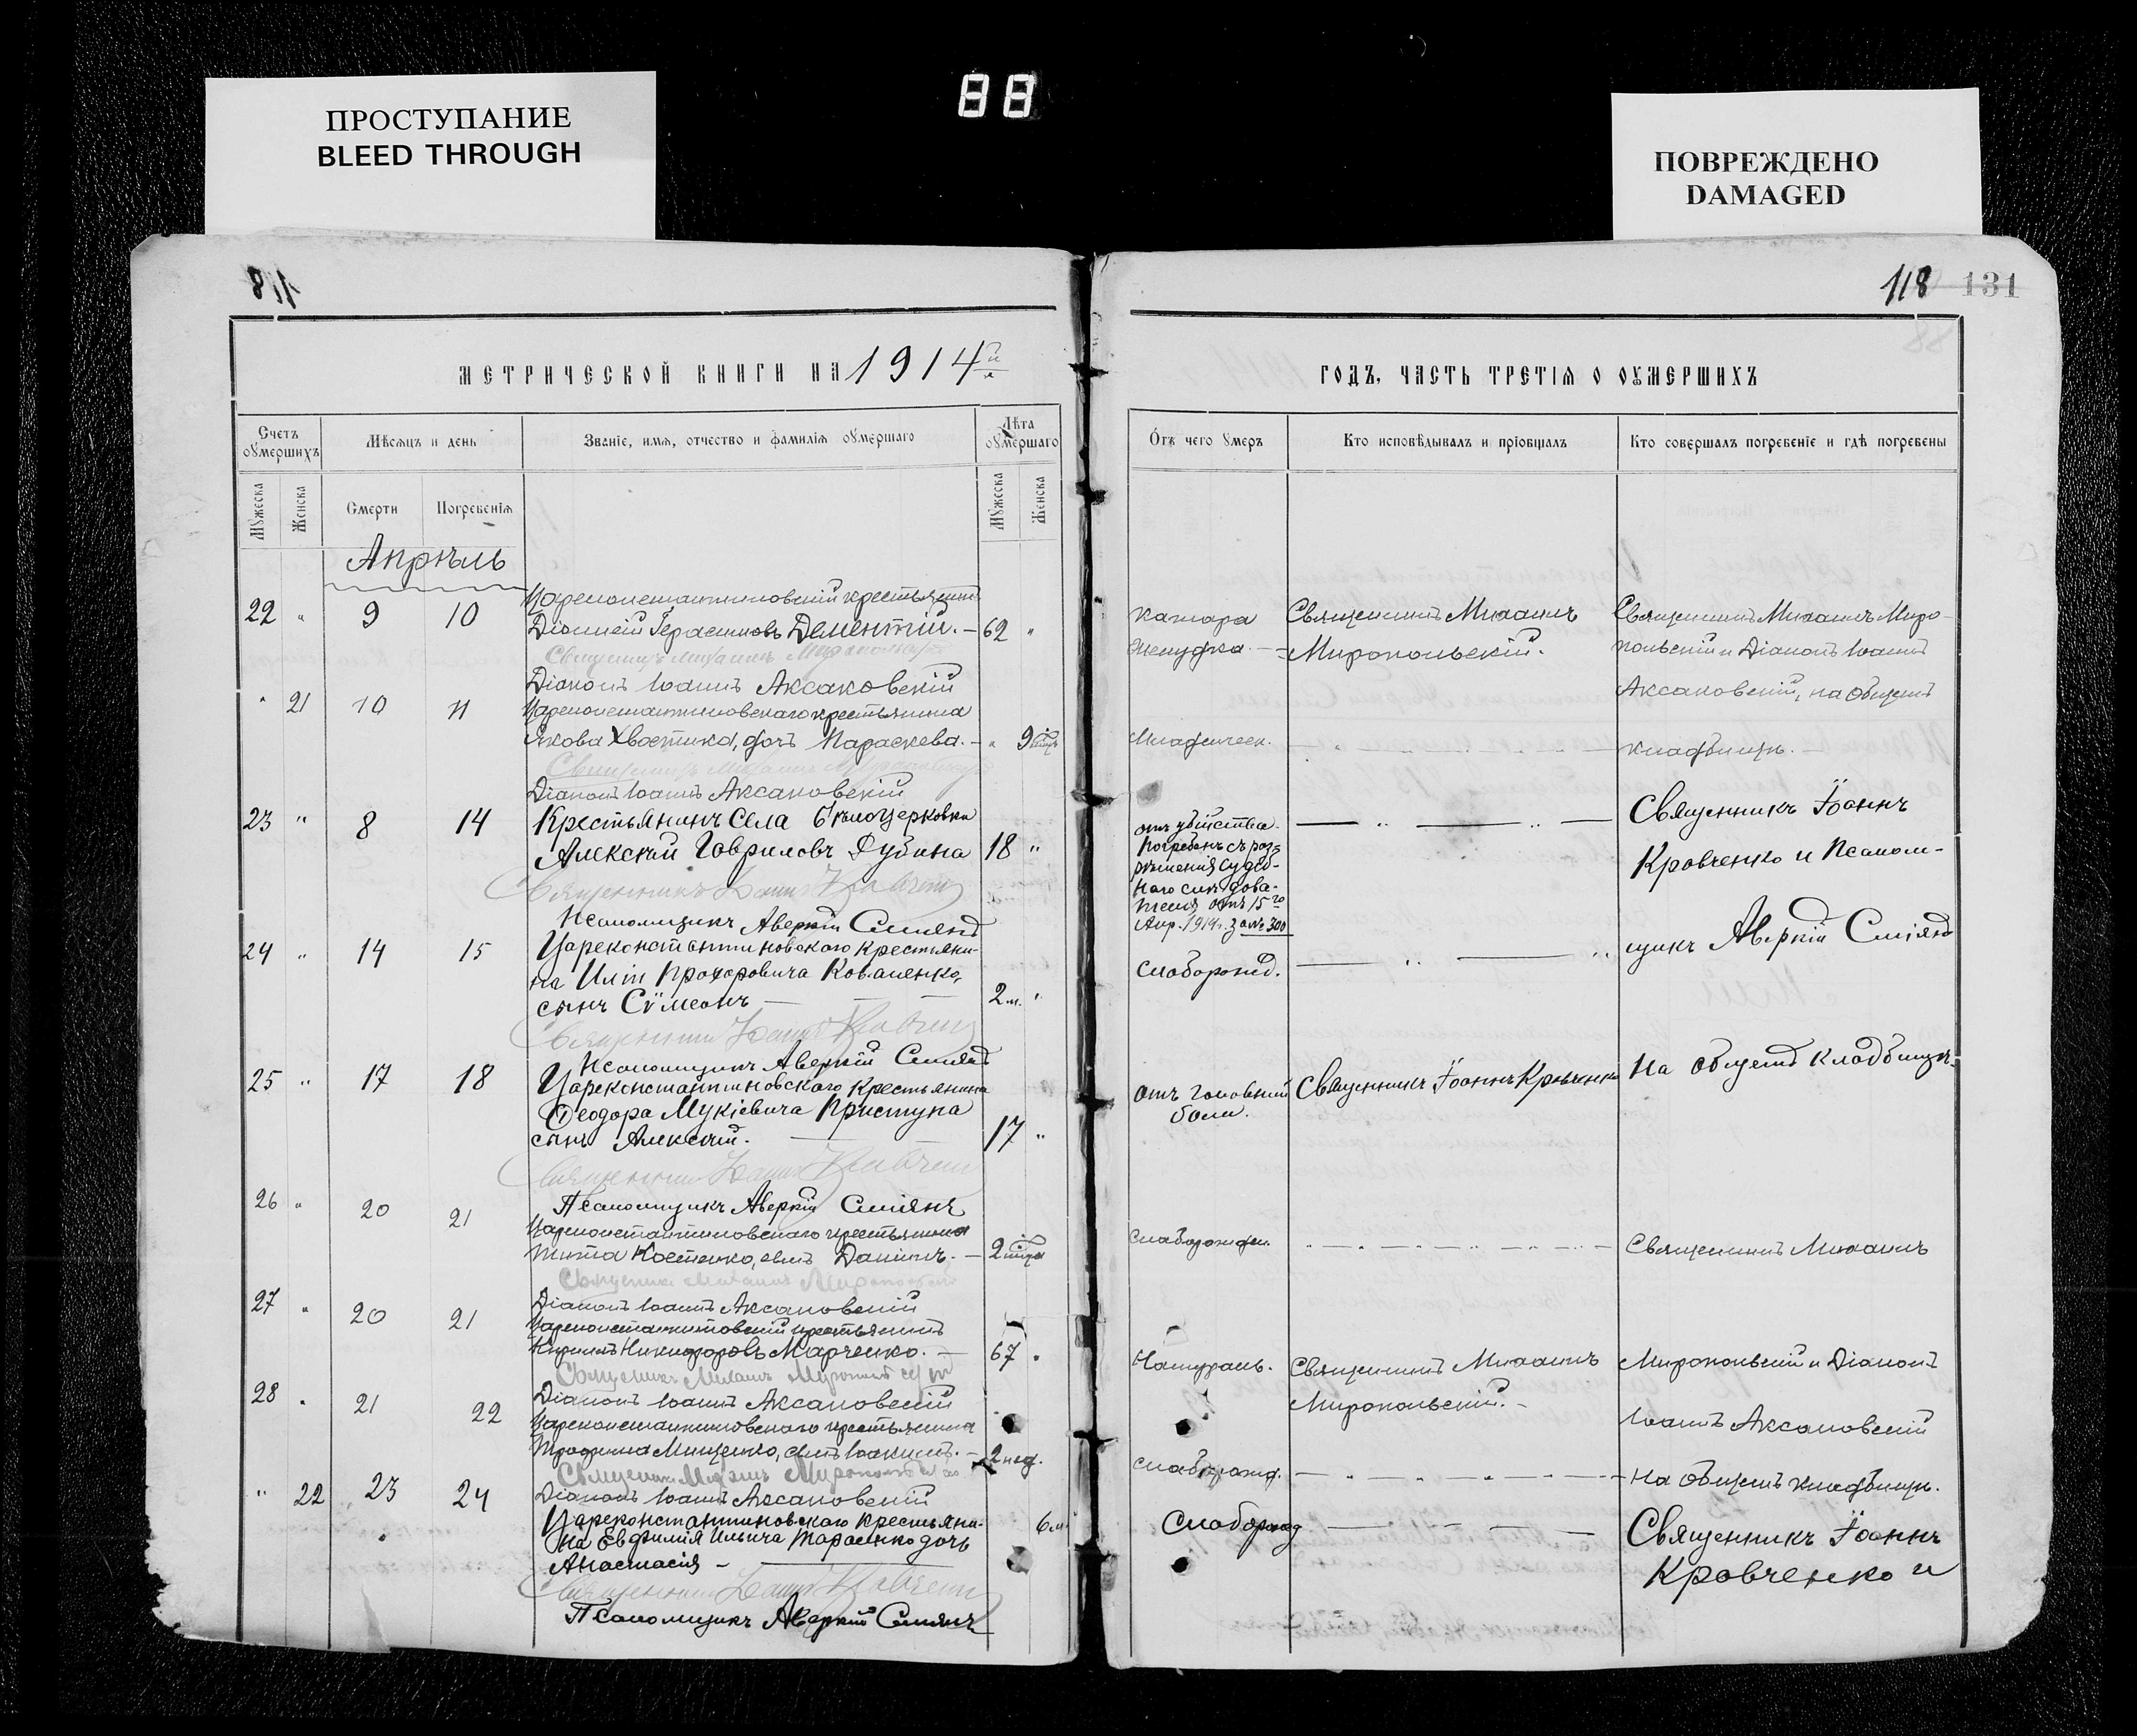 88
ПРОСТУПАНИЕ
BLEED THROUGH
ПОВРЕЖДЕНО
DAMAGED
118
118 131
МЕТРИЧЕСКОЙ КНИГИ НА 1914й
Счетъ оумершихъ
Мѣсяцъ и день
Званіе, имя, отчество и фамилія оумершаго
Лѣта оумершаго
Мужеска
Женска
Смерти
Погребенія
Мужеска
Женска
Апрѣль
22 " 9 10 Цареконстантиновскій крестьянинъ
Діонисій Герасимовъ Дементій. — 62 "
Священникъ Михаилъ Миропольскій
Діаконъ Іоаннъ Аксаковскій
" 21 10 11 Цареконстантиновскаго крестьянина
Якова Хвостика, дочь Параскева. — " 9
Священникъ Михаилъ Миропольскій
Діаконъ Іоаннъ Аксаковскій
23 " 8 14 Крестьянинъ села Бѣлоцерковки
Алексѣй Гавриловъ Дубина 18 "
Священникъ Іоаннъ Кравченко
Псаломщикъ Аверкій Сміянъ
24 " 14 15 Цареконстантиновского крестьяни-
на Иліи Прохоровича Коваленко,
сынъ Сѵмеонъ — 2 м. "
Священникъ Іоаннъ Кравченко
Псаломщикъ Аверкій Сміянъ
25 " 17 18 Цареконстантиновского крестьянина
Ѳеодора Мукіевича Приступа
сынъ Алексѣй. 17 "
Священникъ Іоаннъ Кравченко
Псаломщикъ Аверкій Сміянъ
26 " 20 21 Цареконстантиновскаго крестьянина
Тита Костенко, сынъ Даніилъ. — 2
Священникъ Михаилъ Миропольскій
Діаконъ Іоаннъ Аксаковскій
27 " 20 21 Цареконстантиновскій крестьянинъ
Кириллъ Никифоровъ Марченко. — 67 "
Священникъ Михаилъ Миропольскій
Діаконъ Іоаннъ Аксаковскій
28 " 21 22 Цареконстантиновскаго крестьянина
Трофима Мищенко, сынъ Іоакимъ. — 2 нед.
Священникъ Михаилъ Миропольскій
Діаконъ Іоаннъ Аксаковскій
" 22 23 24 Цареконстантиновскаго крестьяни-
на Евфимія Ильича Тарасенко дочь
Анастасія — 6 м.
Священникъ Іоаннъ Кравченко
Псаломщикъ Аверкій Сміянъ
ГОДЪ, ЧАСТЬ ТРЕТІЯ О ОУМЕРШИХЪ
Отъ чего умеръ
Кто исповѣдывалъ и пріобщалъ
Кто совершалъ погребеніе и гдѣ погребены
Катара Священникъ Михаилъ Священникъ Михаилъ Миро-
желудка. — Миропольскій. польскій и Діаконъ Іоаннъ
Аксаковскій, на общемъ
Младенческ. кладбищѣ. —
отъ убійства. Священникъ Іоаннъ
Погребенъ съ раз- Кравченко и Псалом-
рѣшенія судеб-
наго слѣдова-
теля отъ 15го
Апр. 1914 г. за № 300 щикъ Аверкій Сміянъ
слаборожд.
отъ головной Священникъ Іоаннъ Кравченко на общемъ кладбищѣ.
боли.
слаборожден. Священникъ Михаилъ
Натураль. Священникъ Михаилъ Миропольскій и Діаконъ
Миропольскій. — Іоаннъ Аксаковскій
слаборожд. на общемъ кладбищѣ.
Слаборожд Священникъ Іоаннъ
Кравченко и